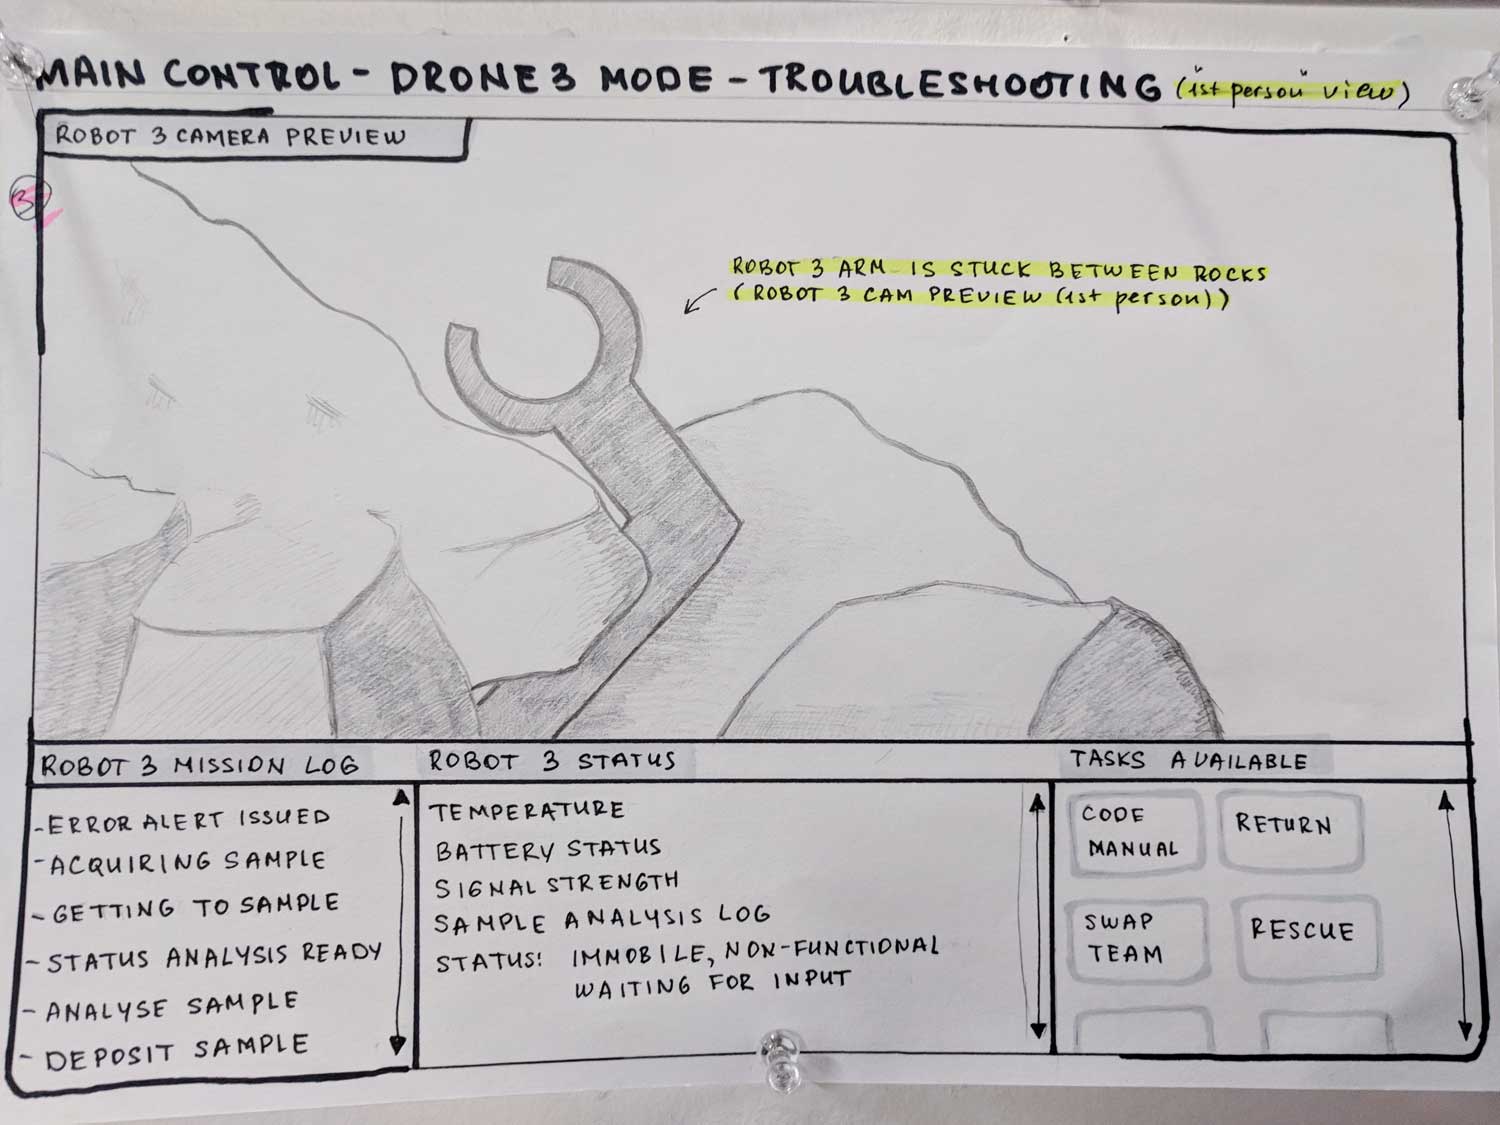 MAIN CONTROL - DRONE 3 MODE - TROUBLESHOOTING ("1st person" view)
ROBOT 3 CAMERA PREVIEW
3
ROBOT 3 ARM IS STUCK BETWEEN ROCKS
(ROBOT 3 CAM PREVIEW (1st person))
ROBOT 3 MISSION LOG
- ERROR ALERT ISSUED
- ACQUIRING SAMPLE
- GETTING TO SAMPLE
- STATUS ANALYSIS READY
- ANALYSE SAMPLE
- DEPOSIT SAMPLE
ROBOT 3 STATUS
TEMPERATURE
BATTERY STATUS
SIGNAL STRENGTH
SAMPLE ANALYSIS LOG
STATUS: IMMOBILE, NON-FUNCTIONAL
WAITING FOR INPUT
TASKS AVAILABLE
CODE
MANUAL
RETURN
SWAP
TEAM
RESCUE